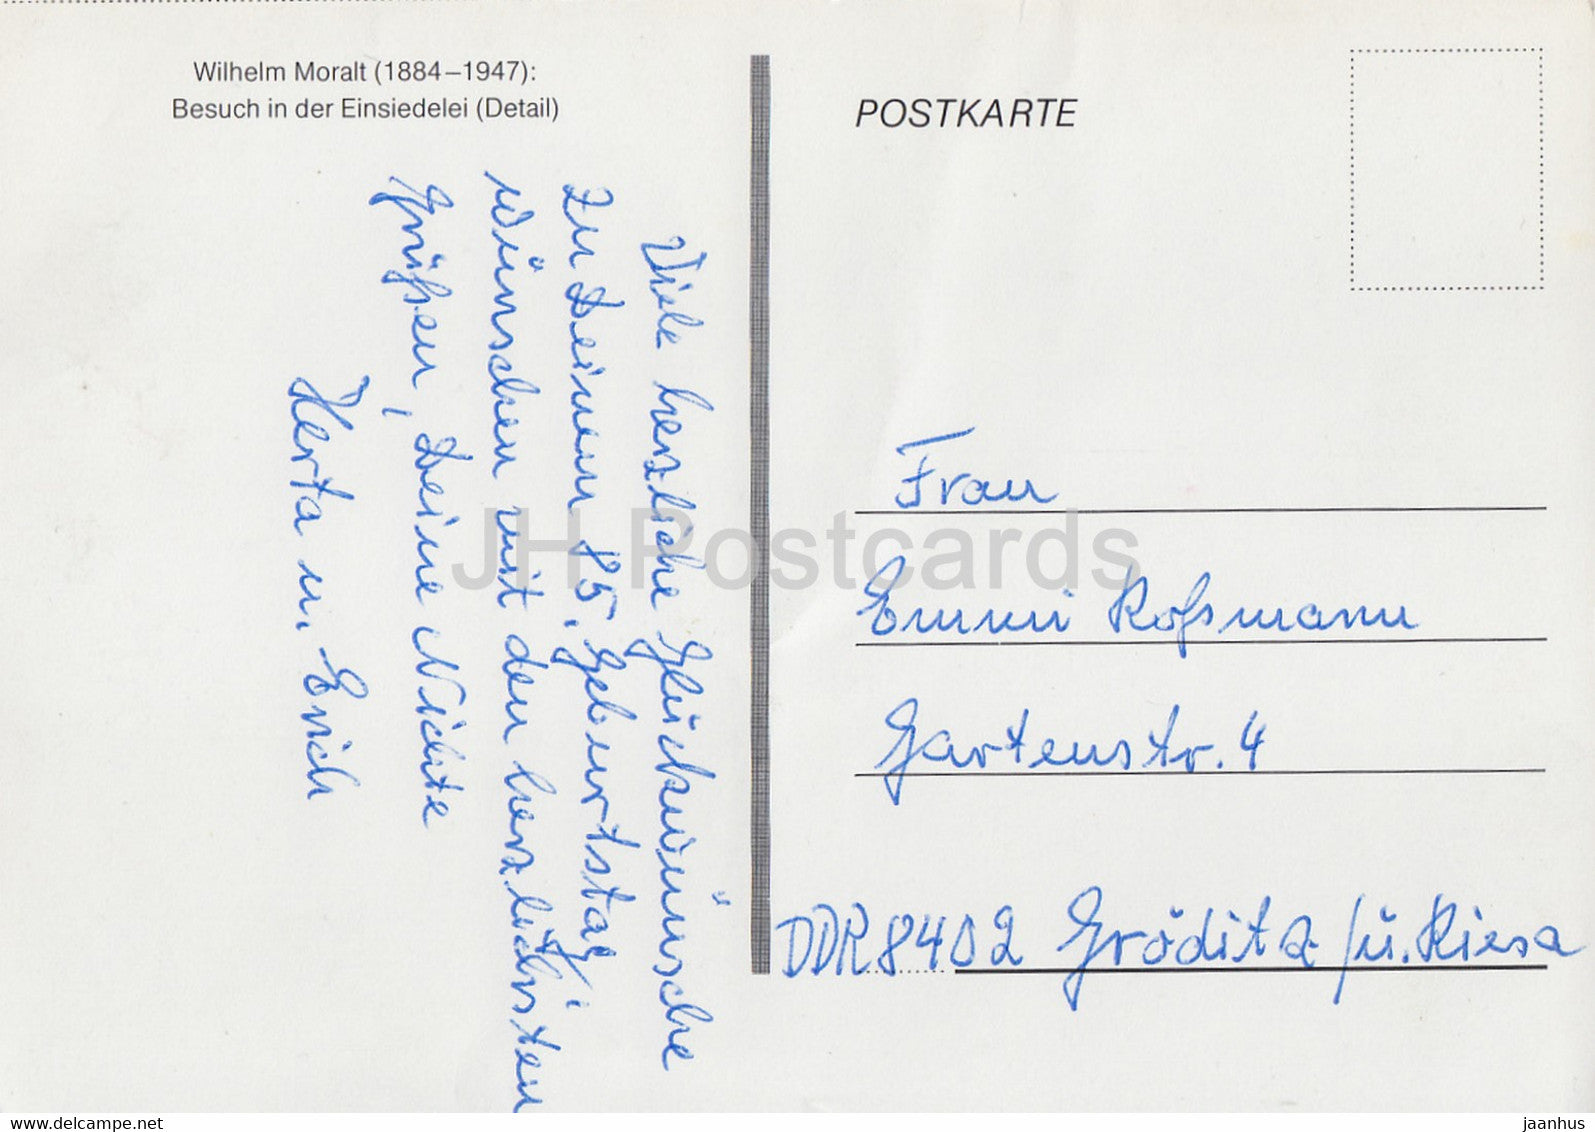 Wilhelm Moralt (1884–1947):
Besuch in der Einsiedelei (Detail)
POSTKARTE
Viele herzliche Glückwünsche
zu Deinem 85. Geburtstag,
wünschen mit den herzlichsten
Grüßen, Deine Nichte
Herta u. Erich
Frau
Emmi Roßmann
Gartenstr. 4
DDR 8402 Gröditz /ü. Riesa
JH Postcards
www.delcampe.net
jaanhus